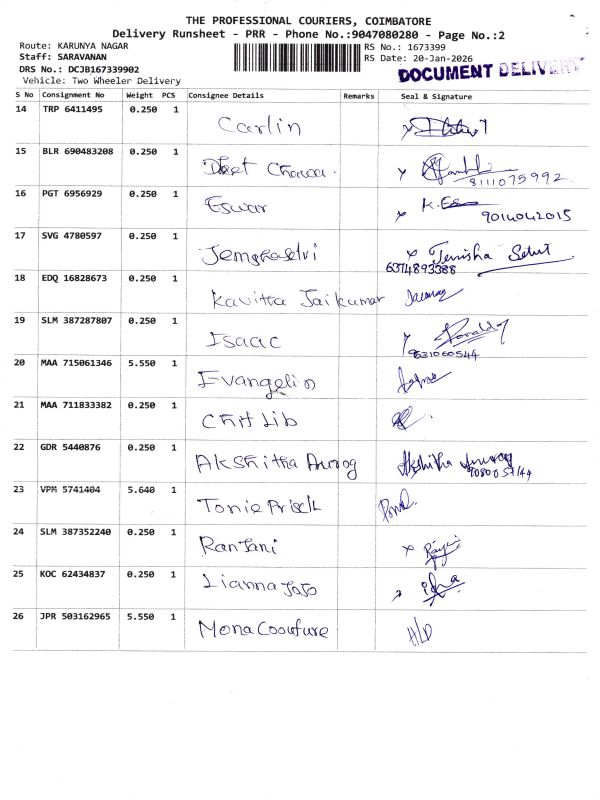 THE PROFESSIONAL COURIERS, COIMBATORE
Delivery Runsheet - PRR - Phone No.:9047080280 - Page No.:2
Route: KARUNYA NAGAR
RS No.: 1673399
Staff: SARAVANAN
RS Date: 20-Jan-2026
DRS No.: DCJB167339902
Vehicle: Two Wheeler Delivery
DOCUMENT DELIVERY
S No Consignment No Weight PCS Consignee Details Remarks Seal & Signature
14 TRP 6411495 0.250 1 Carlin
15 BLR 690483208 0.250 1 8111075992
16 PGT 6956929 0.250 1 Eswar 9014042015
17 SVG 4780597 0.250 1 Tenisha Selvi
6374893388
18 EDQ 16828673 0.250 1 Kavitta Jaikumar
19 SLM 387287807 0.250 1 Isaac
20 MAA 715061346 5.550 1 Evangelin
21 MAA 711833382 0.250 1
22 GDR 5440876 0.250 1 Akshitha Anurog Akshitha
23 VPM 5741404 5.640 1
24 SLM 387352240 0.250 1 Ranjani
25 KOC 62434837 0.250 1 Lianna JoJo
26 JPR 503162965 5.550 1